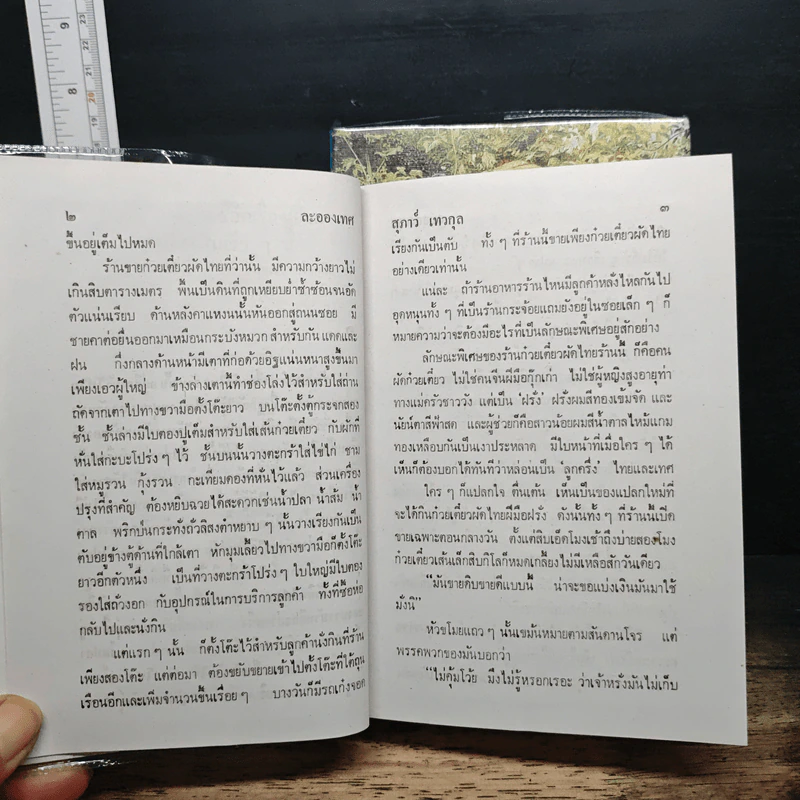 9
8
23
20
๒
ละอองเทศ
ขึ้นอยู่เต็มไปหมด
ร้านขายก๋วยเตี๋ยวผัดไทยที่ว่านั้น มีความกว้างยาวไม่
เกินสิบตารางเมตร พื้นเป็นดินที่ถูกเหยียบย่ำซ้ำซ้อนจนอัด
ตัวแน่นเรียบ ด้านหลังคาแหงนนั้นหันออกสู่ถนนซอย มี
ชายคาต่อยื่นออกมาเหมือนกระบังหมวก สำหรับกันแดดและ
ฝน กึ่งกลางด้านหน้ามีเตาที่ก่อด้วยอิฐแน่นหนาสูงขึ้นมา
เพียงเอวผู้ใหญ่ ข้างล่างเตานั้นทำช่องโล่งไว้สำหรับใส่ถ่าน
ถัดจากเตาไปทางขวามือตั้งโต๊ะยาว บนโต๊ะตั้งตู้กระจกสอง
ชั้น ชั้นล่างมีใบตองปูเต็มสำหรับใส่เส้นก๋วยเตี๋ยว กับผักที่
หั่นใส่กะบะโปร่ง ๆ ไว้ ชั้นบนนั้นวางตะกร้าใส่ไข่ไก่ ชาม
ใส่หมูรวน กุ้งรวน กะเทียมดองที่หั่นไว้แล้ว ส่วนเครื่อง
ปรุงที่สำคัญ ต้องหยิบฉวยได้สะดวกเช่นน้ำปลา น้ำส้ม น้ำ
ตาล พริกป่นกระทั่งถั่วลิสงตำหยาบ ๆ นั้นวางเรียงกันเป็น
ตับอยู่ข้างตู้ด้านที่ใกล้เตา หักมุมเลี้ยวไปทางขวามือก็ตั้งโต๊ะ
ยาวอีกตัวหนึ่ง เป็นที่วางตะกร้าโปร่ง ๆ ใบใหญ่มีใบตอง
รองใส่ถั่วงอก กับอุปกรณ์ในการบริการลูกค้า ทั้งที่ซื้อห่อ
กลับไปและนั่งกิน
แต่แรก ๆ นั้น ก็ตั้งโต๊ะไว้สำหรับลูกค้านั่งกินที่ร้าน
เพียงสองโต๊ะ แต่ต่อมา ต้องขยับขยายเข้าไปตั้งโต๊ะที่ใต้ถุน
เรือนอีกและเพิ่มจำนวนขึ้นเรื่อย ๆ บางวันก็มีรถเก๋งจอด
สุภาว์ เทวกุล
๓
เรียงกันเป็นตับ ทั้ง ๆ ที่ร้านนี้ขายเพียงก๋วยเตี๋ยวผัดไทย
อย่างเดียวเท่านั้น
แน่ละ ถ้าร้านอาหารร้านไหนมีลูกค้าหลั่งไหลกันไป
อุดหนุนทั้ง ๆ ที่เป็นร้านกระจ้อยแถมยังอยู่ในซอยเล็ก ๆ ก็
หมายความว่าจะต้องมีอะไรที่เป็นลักษณะพิเศษอยู่สักอย่าง
ลักษณะพิเศษของร้านก๋วยเตี๋ยวผัดไทยร้านนี้ ก็คือคน
ผัดก๋วยเตี๋ยว ไม่ใช่คนจีนฝีมือกุ๊กเก่า ไม่ใช่ผู้หญิงสูงอายุท่า
ทางแม่ครัวชาววัง แต่เป็น 'ฝรั่ง' ฝรั่งผมสีทองเข้มจัด และ
นัยน์ตาสีฟ้าสด และผู้ช่วยก็คือสาวน้อยผมสีน้ำตาลไหม้แกม
ทองเหลือบกันเป็นเงาประหลาด มีใบหน้าที่เมื่อใคร ๆ ได้
เห็นก็ต้องบอกได้ทันทีว่าหล่อนเป็น 'ลูกครึ่ง' ไทยและเทศ
ใคร ๆ ก็แปลกใจ ตื่นเต้น เห็นเป็นของแปลกใหม่ที่
จะได้กินก๋วยเตี๋ยวผัดไทยฝีมือฝรั่ง ดังนั้นทั้ง ๆ ที่ร้านนี้เปิด
ขายเฉพาะตอนกลางวัน ตั้งแต่สิบเอ็ดโมงเช้าถึงบ่ายสองโมง
ก๋วยเตี๋ยวเส้นเล็กสิบกิโลก็หมดเกลี้ยงไม่มีเหลือสักวันเดียว
"มันขายดิบขายดีแบบนี้ น่าจะขอแบ่งเงินมันมาใช้
มั่งนิ"
หัวขโมยแถว ๆ นั้นเขม้นหมายตามสันดานโจร แต่
พรรคพวกของมันบอกว่า
"ไม่คุ้มโว้ย มึงไม่รู้หรอกเรอะ ว่าเจ้าหรั่งมันไม่เก็บ